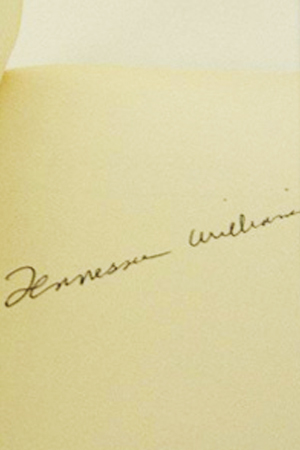 Tennessee Williams